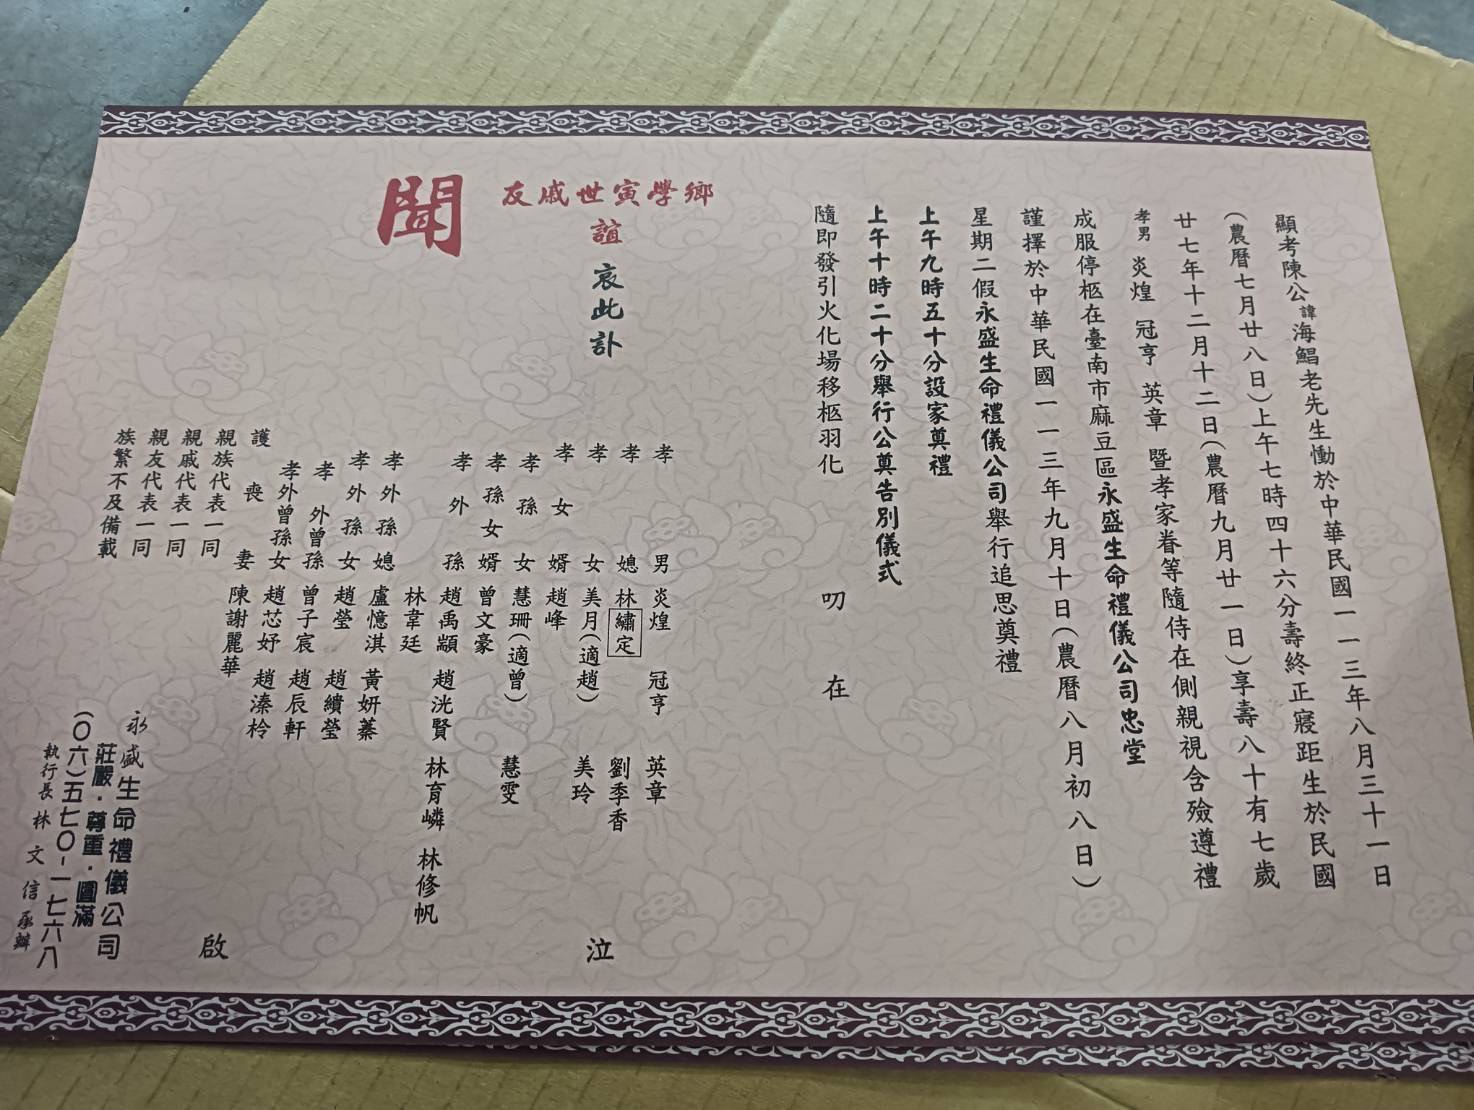 顯考陳公諱海鯧老先生慟於中華民國一一三年八月三十一日
(農曆七月廿八日)上午七時四十六分壽終正寢距生於民國
廿七年十二月十二日(農曆九月廿一日)享壽八十有七歲
孝男 炎煌 冠亨 英章 暨孝家眷等隨侍在側親視含殮遵禮
成服停柩在臺南市麻豆區永盛生命禮儀公司忠堂
謹擇於中華民國一一三年九月十日(農曆八月初八日)
星期二假永盛生命禮儀公司舉行追思奠禮
上午九時五十分設家奠禮
上午十時二十分舉行公奠告別儀式
隨即發引火化場移柩羽化 叨 在
鄉學寅世戚友
誼
哀此訃
聞
孝男 炎煌 冠亨 英章
孝媳 林繡定 劉季香
孝女 美月(適趙) 美玲
孝女婿 趙峰
孝孫女 慧珊(適曾) 慧雯
孝孫女婿 曾文豪
孝外孫 趙禹顓 趙洸賢 林育嶙 林修帆
林韋廷
孝外孫媳 盧憶淇 黃妍蓁
孝外孫女 趙瑩 趙繢瑩
孝外曾孫 曾子宸 趙辰軒
孝外曾孫女 趙芯妤 趙溱柃
護喪妻 陳謝麗華
泣
親族代表一同
親戚代表一同
親友代表一同
族繁不及備載
啟
永盛生命禮儀公司
莊嚴．尊重．圓滿
(〇六)五七〇-一七六八
執行長 林文信承辦